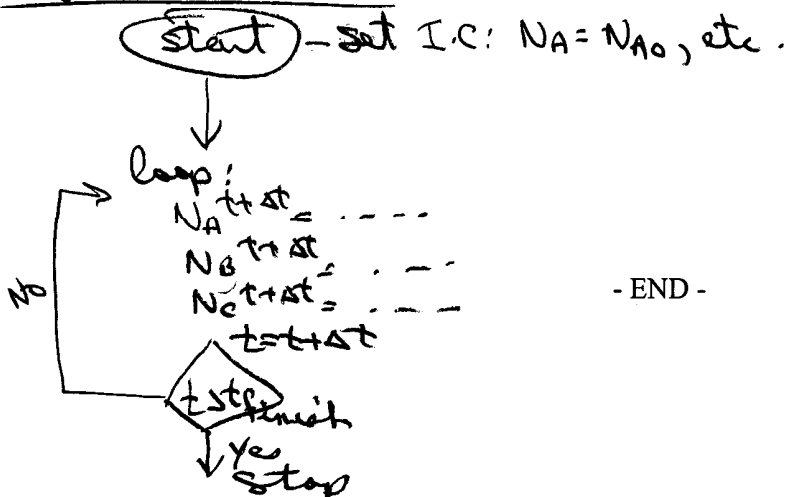 start - set I.C: NA = NAo, etc.
loop:
NA t+Δt = . - - -
NB t+Δt = . - -
NC t+Δt = . - - -
t=t+Δt
- END -
NO
finish
Yes
stop